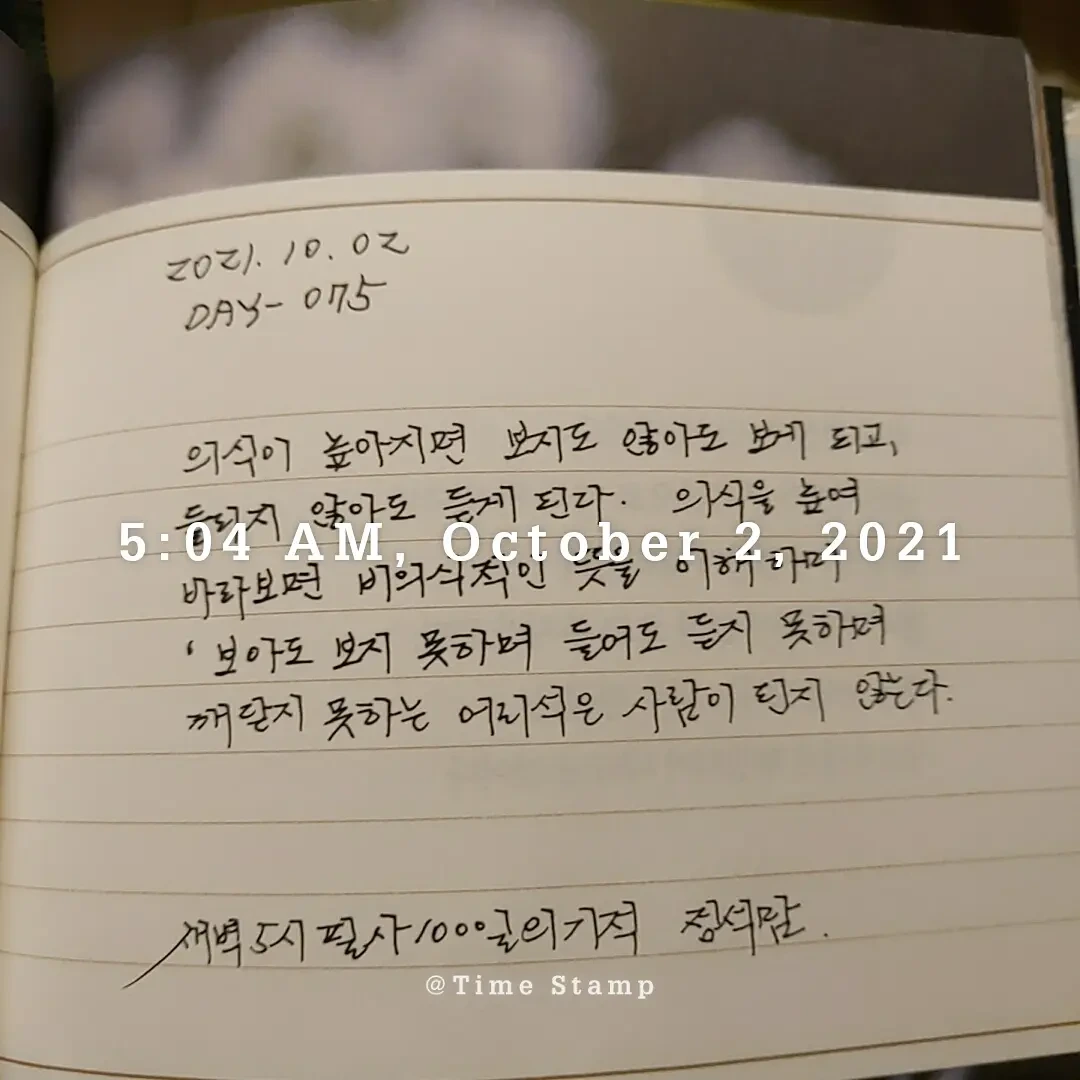 2021. 10. 02
DAY- 075
의식이 높아지면 보지도 않아도 보게 되고,
들리지 않아도 듣게 된다. 의식을 높여
5:04 AM, October 2, 2021
바라보면 비의식적인 뜻을 이해하며
' 보아도 보지 못하며 들어도 듣지 못하며
깨닫지 못하는 어리석은 사람이 되지 않는다.
새벽 5시 필사 1000일의 기적 정석맘.
@Time Stamp